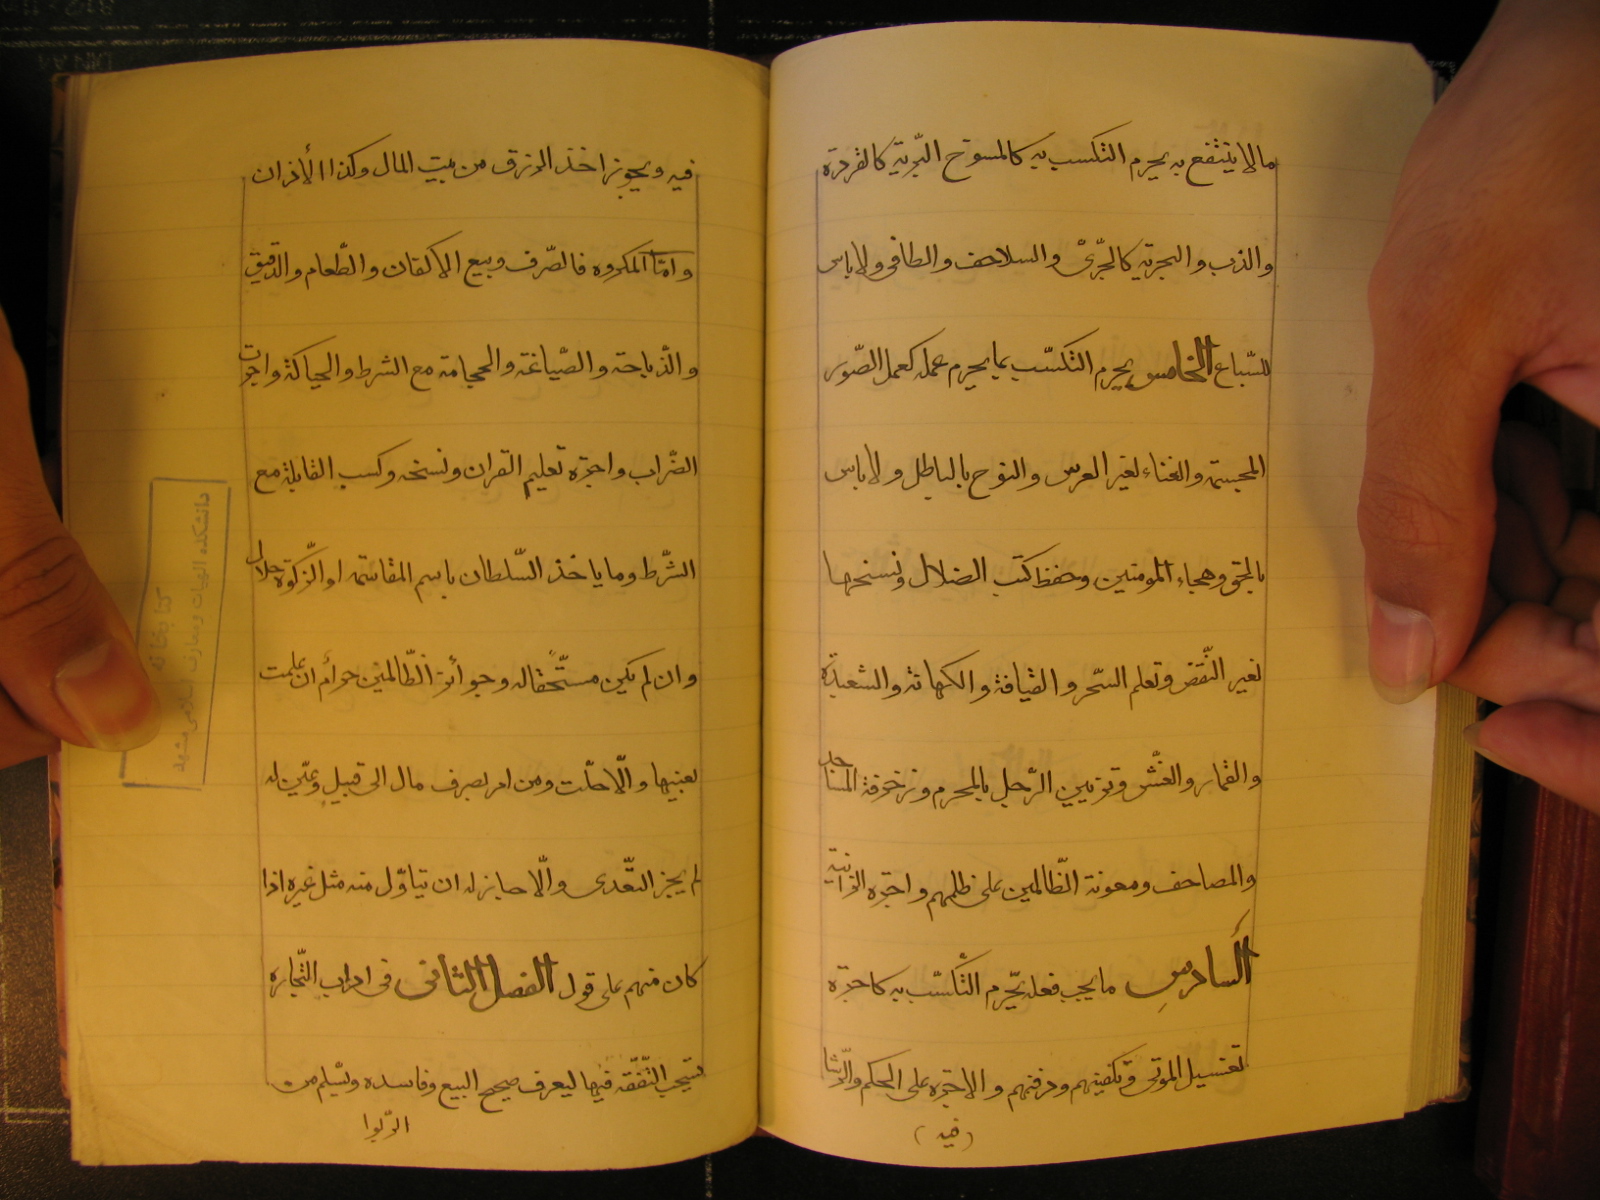 ما لا ینتفع به یحرم التکسب به کالمسوخ البّریة کالقردة
والدب والبحریة کالجّری والسلاحف والطافی ولا باس
للسّباع الخامس یحرم التکسّب بما یحرم عمله کعمل الصّور
المجسمة والغناء لغیر العرس والنوح بالباطل ولا باس
بالحق وهجاء المومنین وحفظ کتب الضلال ونسخها
لغیر النّقض وتعلم السّحر والقیافة والکهانة والشعبدة
والقمار والغشّ وتزیین الرّجل بالمحرم وزخرفة المساجد
والمصاحف ومعونة الظّالمین علی ظلمهم واجرة الزانیة
السادس ما یجب فعله یحّرم التّکسّب به کاجرة
تغسیل الموتی وتکفینهم ودفنهم والاجرة علی الحکم والرّشا
(فیه)
فیه ویجوز اخذ الرزق من بیت المال وکذا الأذان
وامّا المکروه فالصّرف وبیع الاکفان والطّعام والرّقیق
والذّباحة والصّیاغة والحجامة مع الشرط والحیاکة واجرت
الضّراب واجرة تعلیم القران ونسخه وکسب القابلة مع
الشّرط وما یاخذ السّلطان باسم المقاسمة او الزّکوة حلال
وان لم یکن مستّحقا له وجوائز الظّالمین حرام ان علمت
بعینها والّا حلّت ومن امر بصرف مال الی قبیلٍ وعیّن له
لم یجز التعّدی والّا جاز له ان یتاوّل منه مثل غیره اذا
کان منهم علی قول الفصل الثانی فی اداب التّجارة
یستحب التّفقّه فیها لیعرف صحیح البیع وفاسده ویسّلم من
الرّبوا
کتابخانه
دانشکده الهیات ومعارف اسلامی مشهد